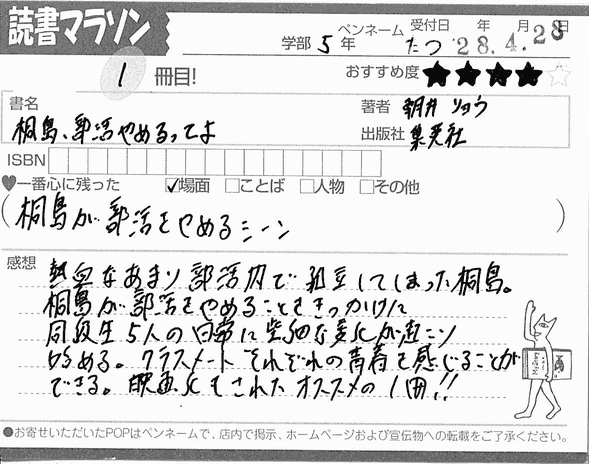 読書マラソン
学部 5年
ペンネーム たつ
受付日 '28年 4月 28日
1 冊目!
おすすめ度 ★★★★☆
書名
桐島、部活やめるってよ
著者 朝井 リョウ
出版社 集英社
ISBN
♥一番心に残った ☑場面 □ことば □人物 □その他
(桐島が部活をやめるシーン)
感想
熱血なあまり部活内で孤立してしまった桐島。
桐島が部活をやめることをきっかけに
同級生5人の日常に些細な変化が起こり
始める。クラスメートそれぞれの青春を感じることが
できる。映画化もされたオススメの1冊!!
●お寄せいただいたPOPはペンネームで、店内で掲示、ホームページおよび宣伝物への転載をご了承ください。